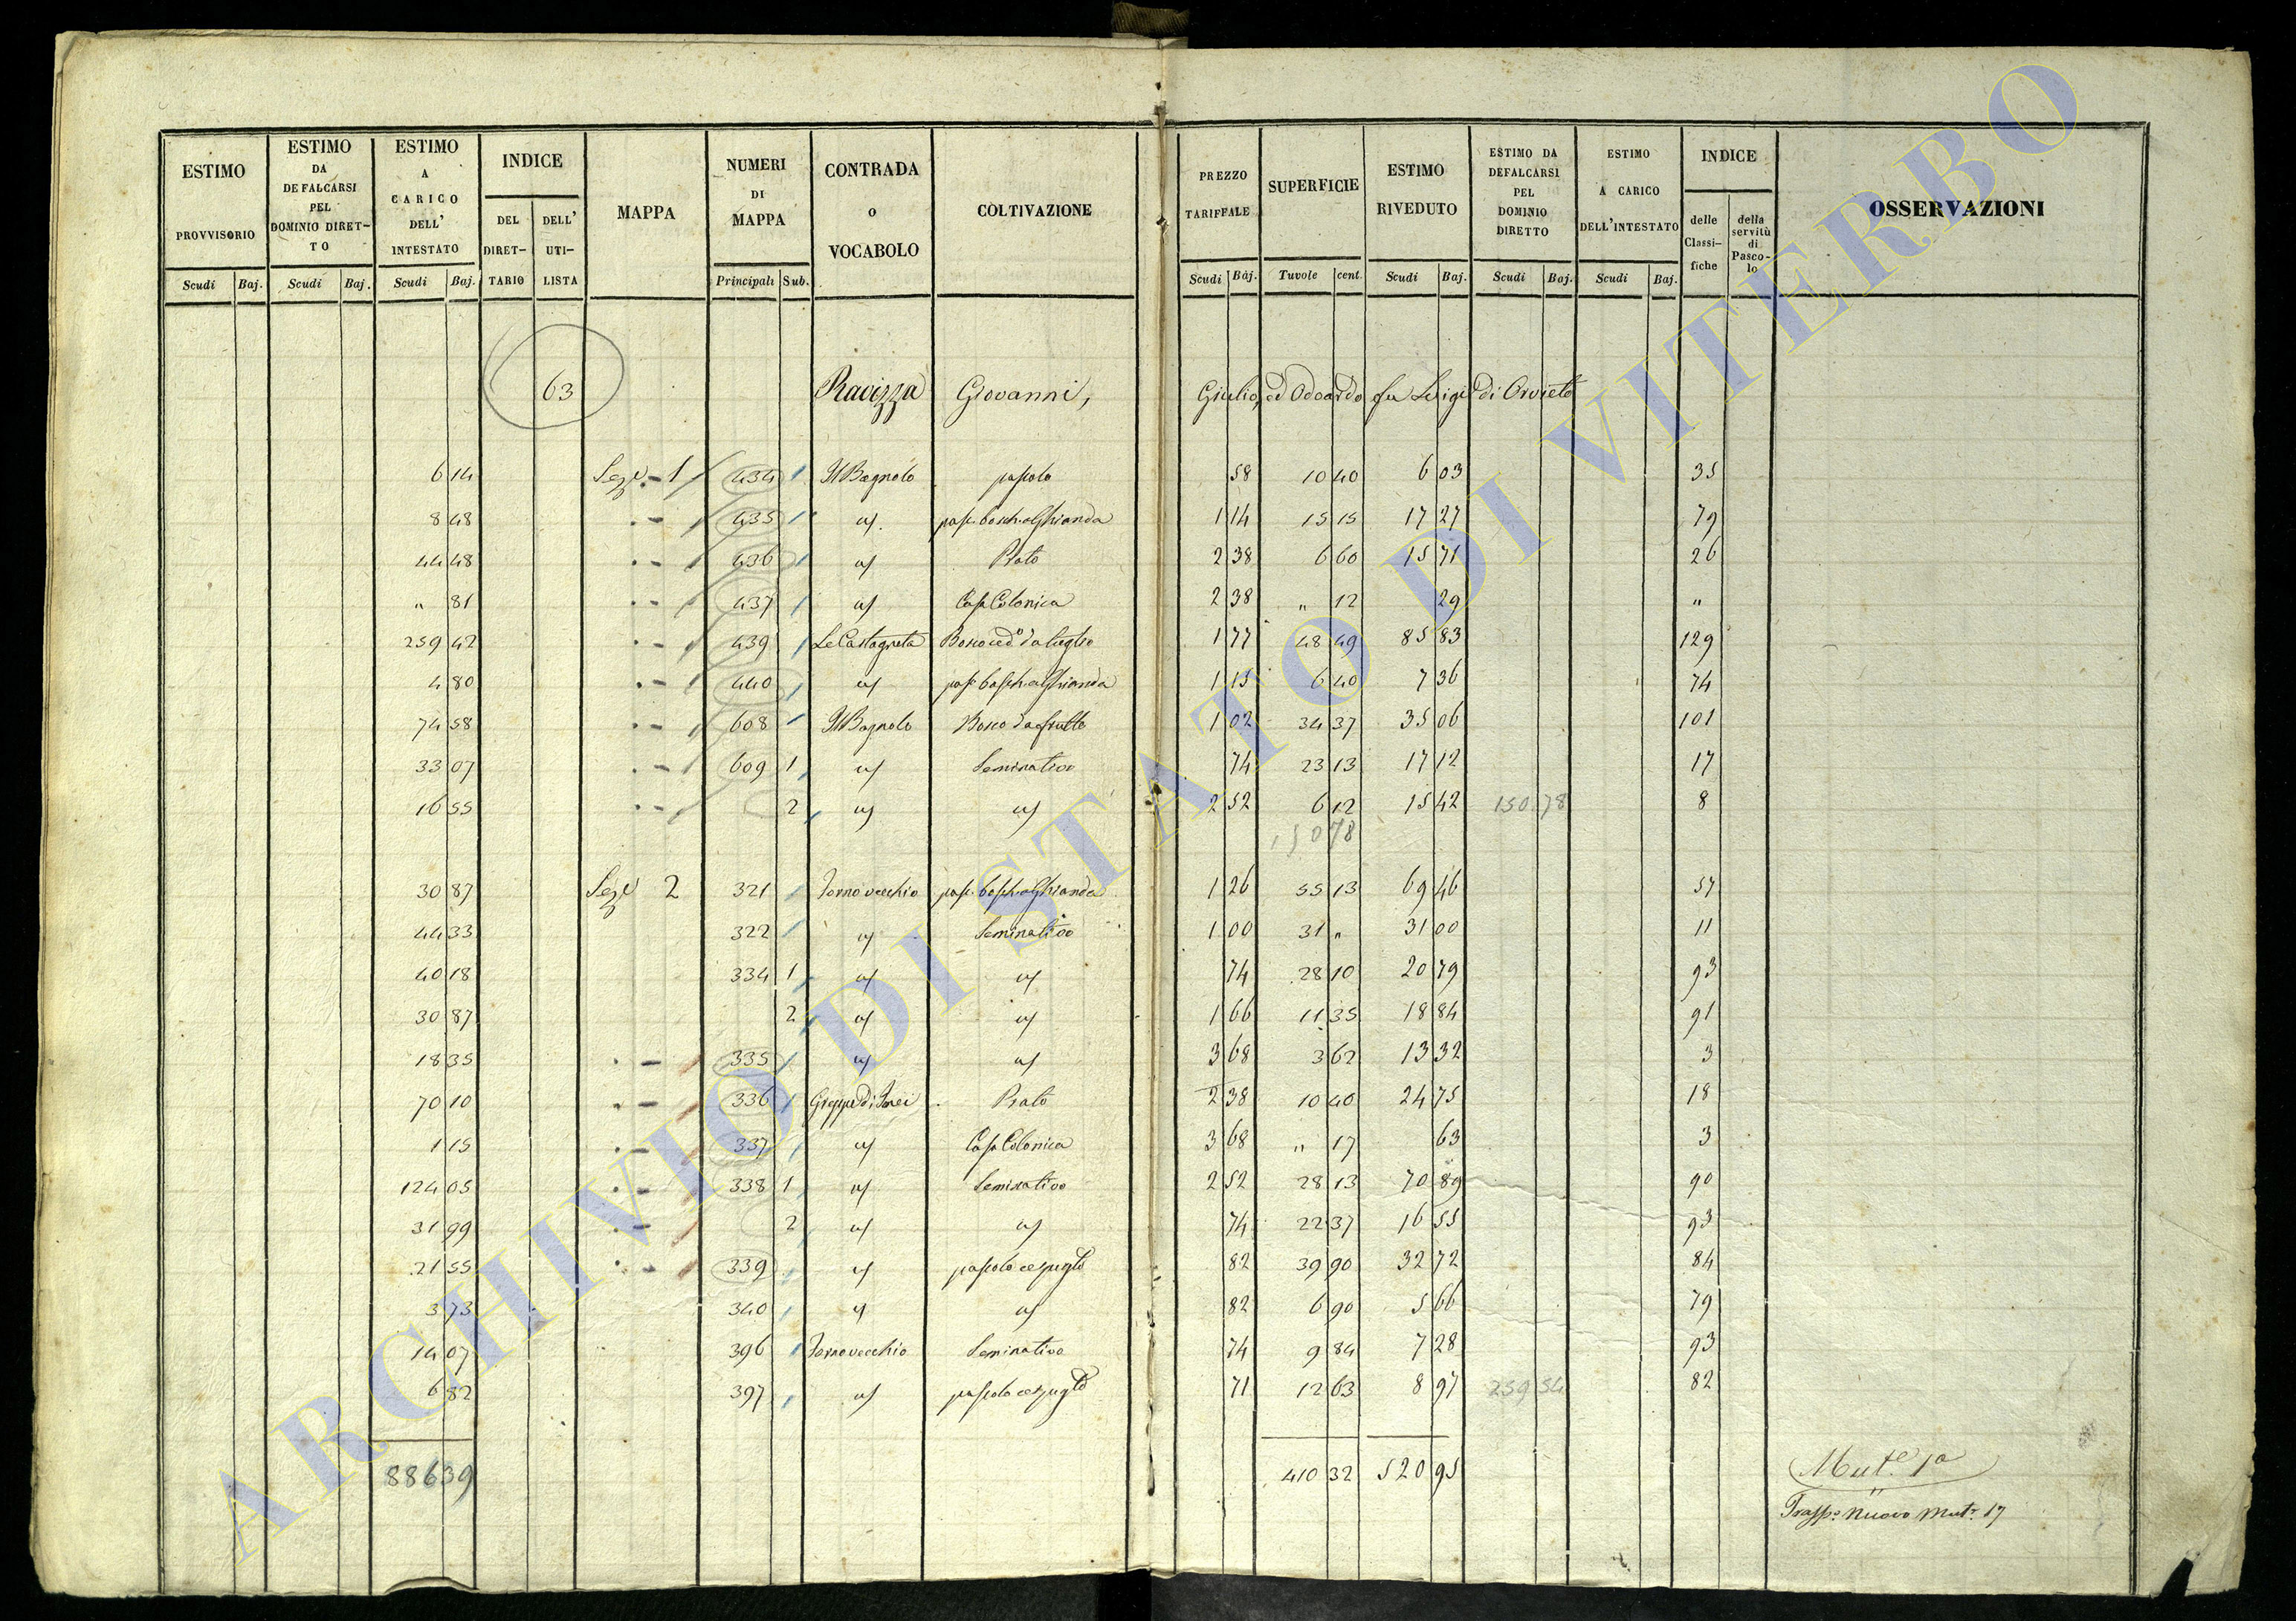 ESTIMO PROVVISORIO Scudi Baj.
ESTIMO DA DEFALCARSI PEL DOMINIO DIRETTO Scudi Baj.
ESTIMO A CARICO DELL' INTESTATO Scudi Baj.
INDICE DEL DIRETTARIO DELL' UTILISTA
MAPPA
NUMERI DI MAPPA Principali Sub.
CONTRADA o VOCABOLO
COLTIVAZIONE
PREZZO TARIFFALE Scudi Baj.
SUPERFICIE Tavole cent.
ESTIMO RIVEDUTO Scudi Baj.
ESTIMO DA DEFALCARSI PEL DOMINIO DIRETTO Scudi Baj.
ESTIMO A CARICO DELL'INTESTATO Scudi Baj.
INDICE delle Classifiche della servitù di Pascolo
OSSERVAZIONI
63 Ravizza Giovanni, Giulio, ed Odoardo fu Luigi di Orvieto
6 14 Sez.e 1 434 Il Bagnolo pascolo 58 10 40 6 03 35
8 48 435 pasc. bosch. a Ghianda 1 14 15 15 17 27 79
44 48 436 Prato 2 38 6 60 15 71 26
" 81 437 Casa Colonica 2 38 " 12 29 "
259 42 439 Le Castagneta Bosco ced.o da taglio 1 77 48 49 85 83 129
4 80 440 pasc. bosch. a Ghianda 1 15 6 40 7 36 74
74 58 608 Il Bagnolo Bosco da frutto 1 02 34 37 35 06 101
33 07 609 1 Seminativo 74 23 13 17 12 17
16 55 2 2 52 6 12 15 42 150 78 8
150 78
30 87 Sez.e 2 321 Forno vecchio pasc. bosch. a Ghianda 1 26 55 13 69 46 57
44 33 322 Seminativo 1 00 31 " 31 00 11
40 18 334 1 74 28 10 20 79 93
30 87 2 1 66 11 35 18 84 91
18 35 335 3 68 3 62 13 32 3
70 10 336 Prato 2 38 10 40 24 75 18
1 15 337 Casa Colonica 3 68 " 17 63 3
124 05 338 1 Seminativo 2 52 28 13 70 89 90
31 99 2 74 22 37 16 55 93
21 55 339 pascolo cespugl.o 82 39 90 32 72 84
3 73 340 82 6 90 5 66 79
14 07 396 Forno vecchio Seminativo 74 9 84 7 28 93
6 82 397 pascolo cespugl.o 71 12 63 8 97 259 54 82
886 39 410 32 520 95
Mut.e 1a
Trasp.o nuovo Mut.e 17
ARCHIVIO DI STATO DI VITERBO